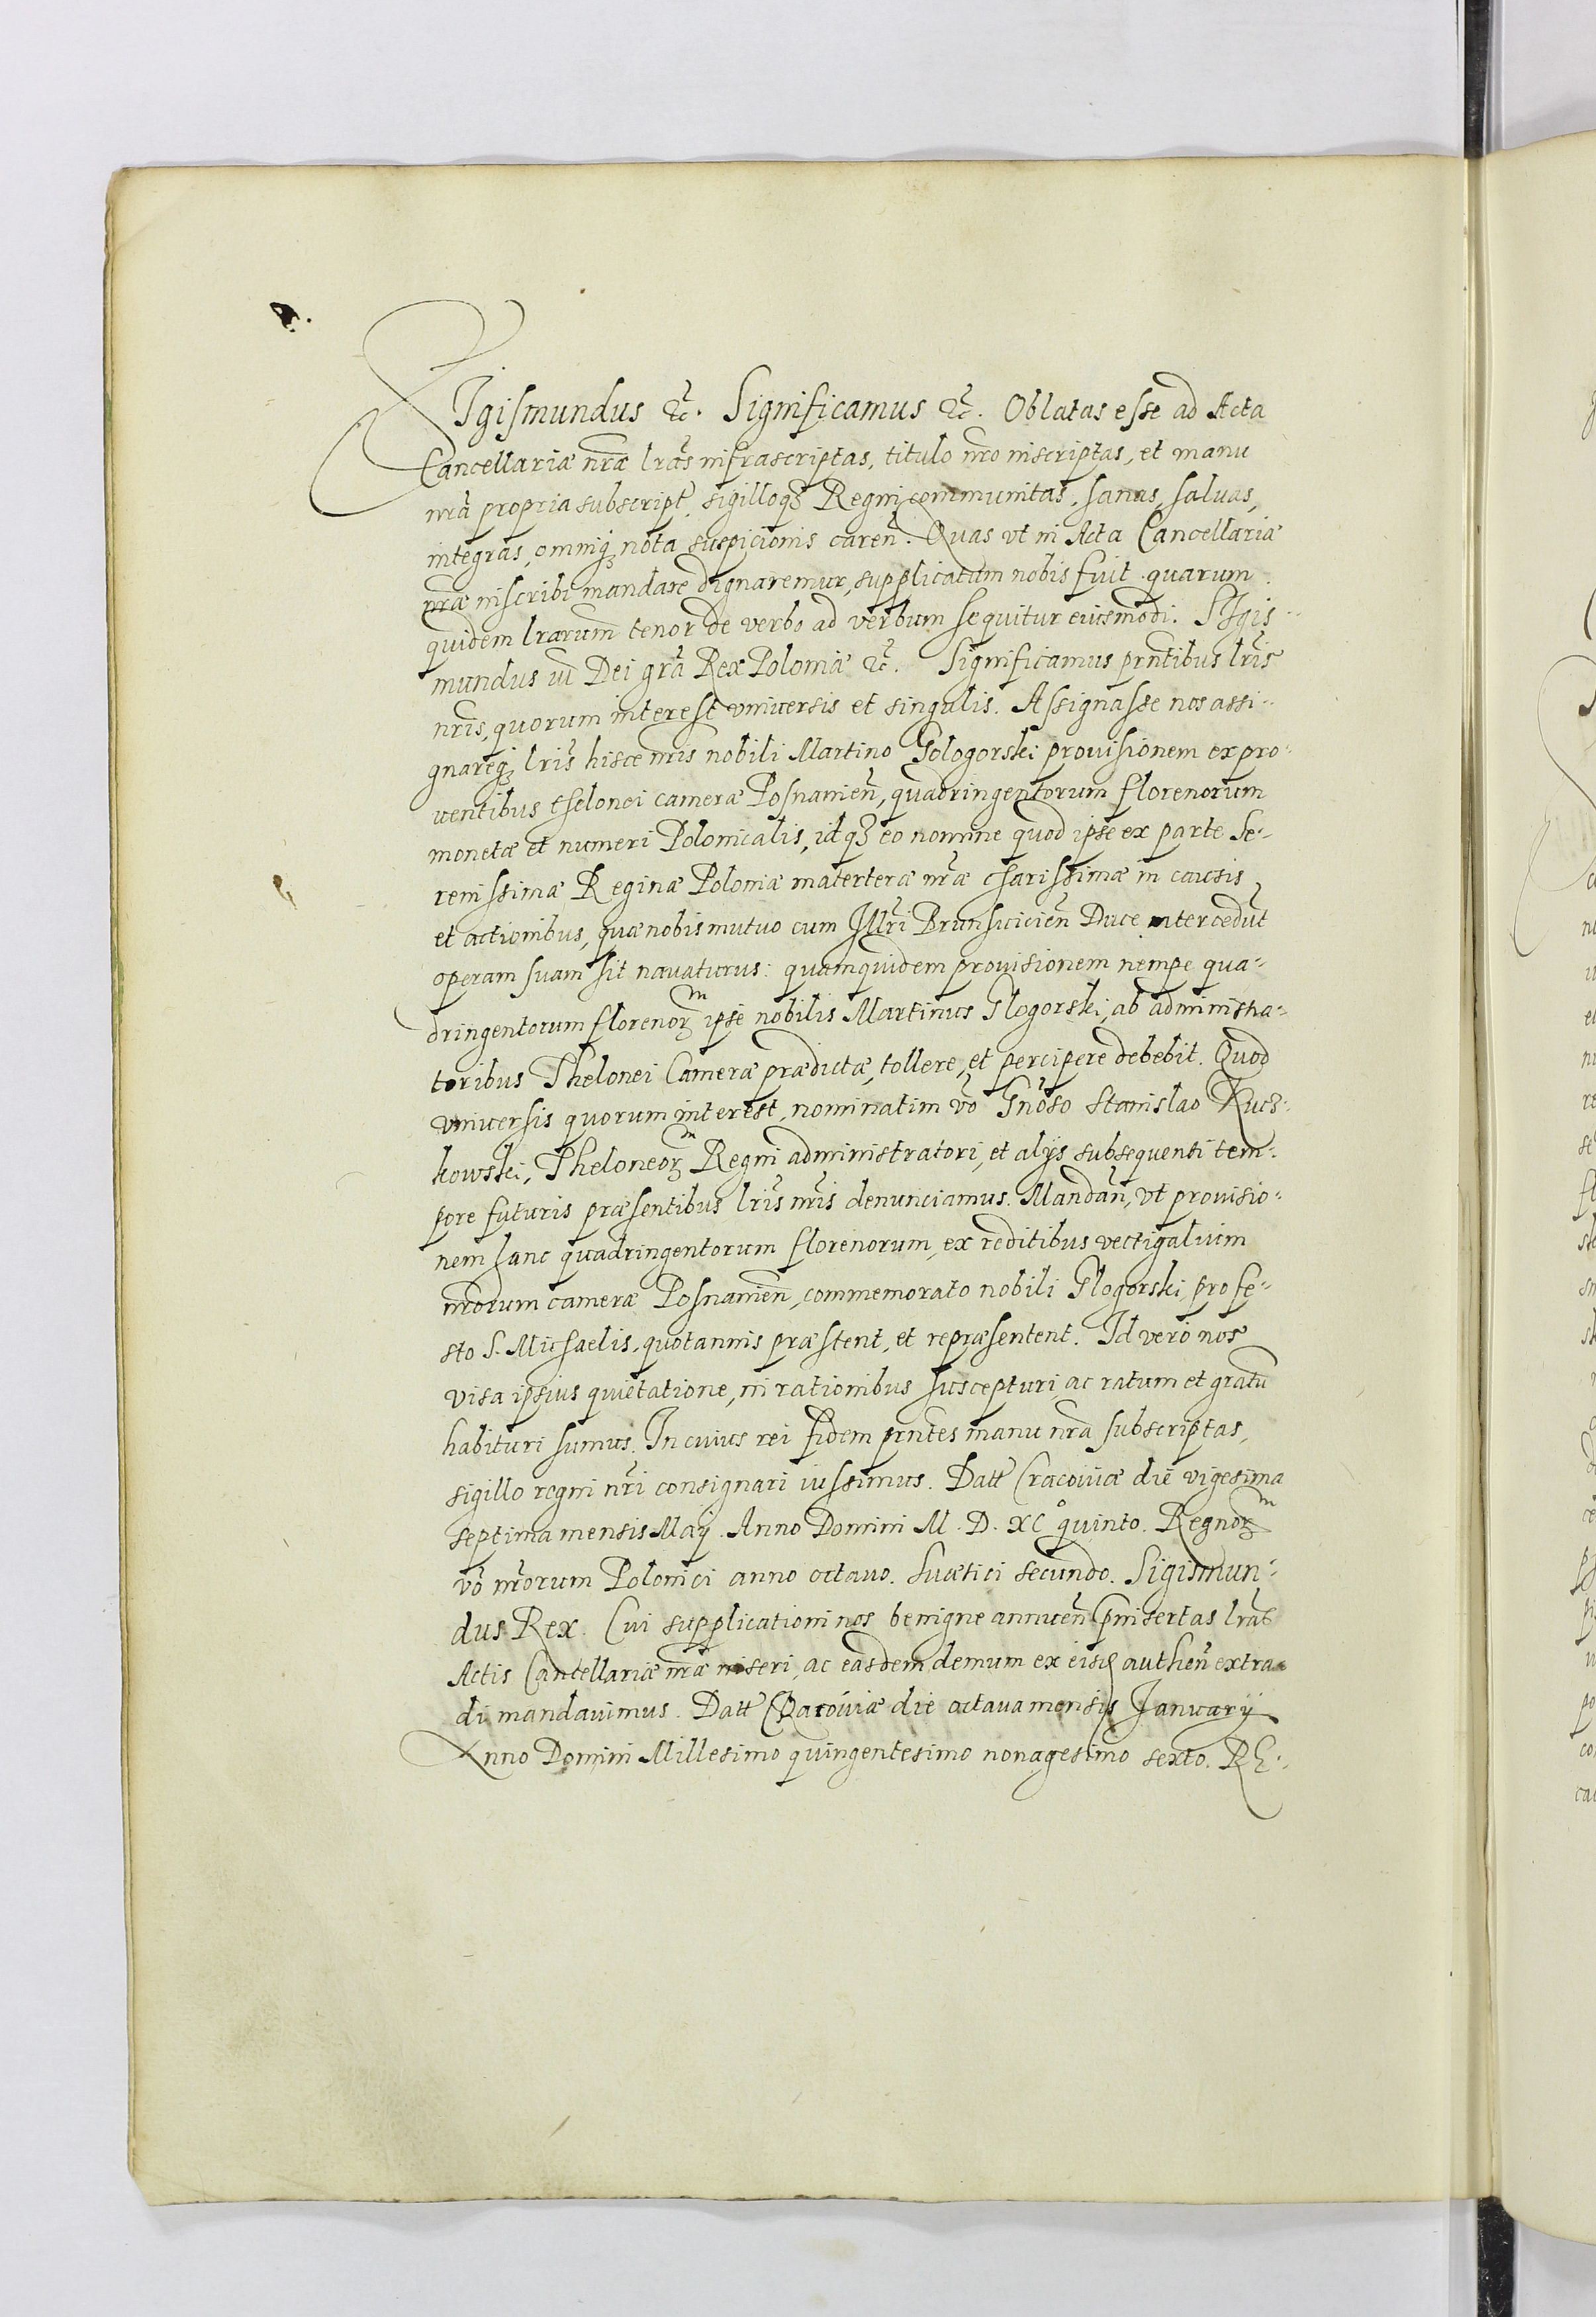 SIgismundus etc̃. Significamus etc̃. Oblatas esse ad Acta
Cancellariæ nr̃æ lrãs infrascriptas, titulo nr̃o inscriptas, et manu
nr̃a propria subscript̃, sigilloqꝫ Regni communitas, sanas, saluas,
integras, omniqꝫ nota suspicionis careñ. Quas vt in Acta Cancellariæ
nr̃æ inscribi mandare dignaremur, supplicatum nobis fuit. quarum
quidem lrãrum tenor de verbo ad verbum sequitur eiusmodi. SIgis-
mundus iii Dei grã Rex Poloniæ etc̃. Significamus prñtibus lrĩs
nrĩs, quorum interest vniuersis et singulis. Assignasse nos assi-
gnareqꝫ lrĩs hisce nrĩs nobili Martino Gologorski prouisionem ex pro-
uentibus thelonei cameræ Posnanieñ, quadringentorum florenorum
monetæ et numeri Polonicalis, idqꝫ eo nomine quod ipse ex parte Se-
renissimæ Reginæ Poloniæ materteræ nr̃æ charissimæ in causis
et actionibus, quæ nobis mutuo cum Illr̃i Brunsuicieñ Duce intercedũt
operam suam sit nauaturus: quamquidem prouisionem nempe qua-
dringentorum florenorꝫᵐ ipse nobilis Martinus Glogorski, ab administra-
toribus Thelonei Cameræ prædictæ, tollere, et percipere debebit. Quod
vniuersis quorum interest, nominatim võ Gnõso Stanislao Kucz-
kowski, Theloneorꝫᵐ Regni administratori, et alijs subsequenti tem-
pore futuris præsentibus lrĩs nrĩs denunciamus. Mandañ, vt prouisio-
nem hanc quadringentorum florenorum, ex reditibus vectigalium
nr̃orum cameræ Posnanieñ, commemorato nobili Glogorski, pro fe-
sto S. Michaelis, quotannis præstent, et repræsentent. Id vero nos
visa ipsius quietatione, in rationibus suscepturi, ac ratum et gratũ
habituri sumus. In cuius rei fidem prñtes manu nr̃a subscriptas,
sigillo regni nr̃i consignari iussimus. Datt̃ Cracouiæ die vigesima
septima mensis Maij. Anno Domini M. D. XCº quinto. Regnorꝫᵐ
võ nr̃orum Polonici anno octauo. Suætici secundo. Sigismun-
dus Rex. Cui supplicationi nos benigne annueñ p̃insertas lrãs
Actis Cancellariæ nr̃æ inseri, ac easdem demum ex eisd autheñ extra-
di mandauimus. Datt̃ Cracouiæ die octaua mensis Januarij
Anno Domini Millesimo quingentesimo nonagesimo sexto. RE.